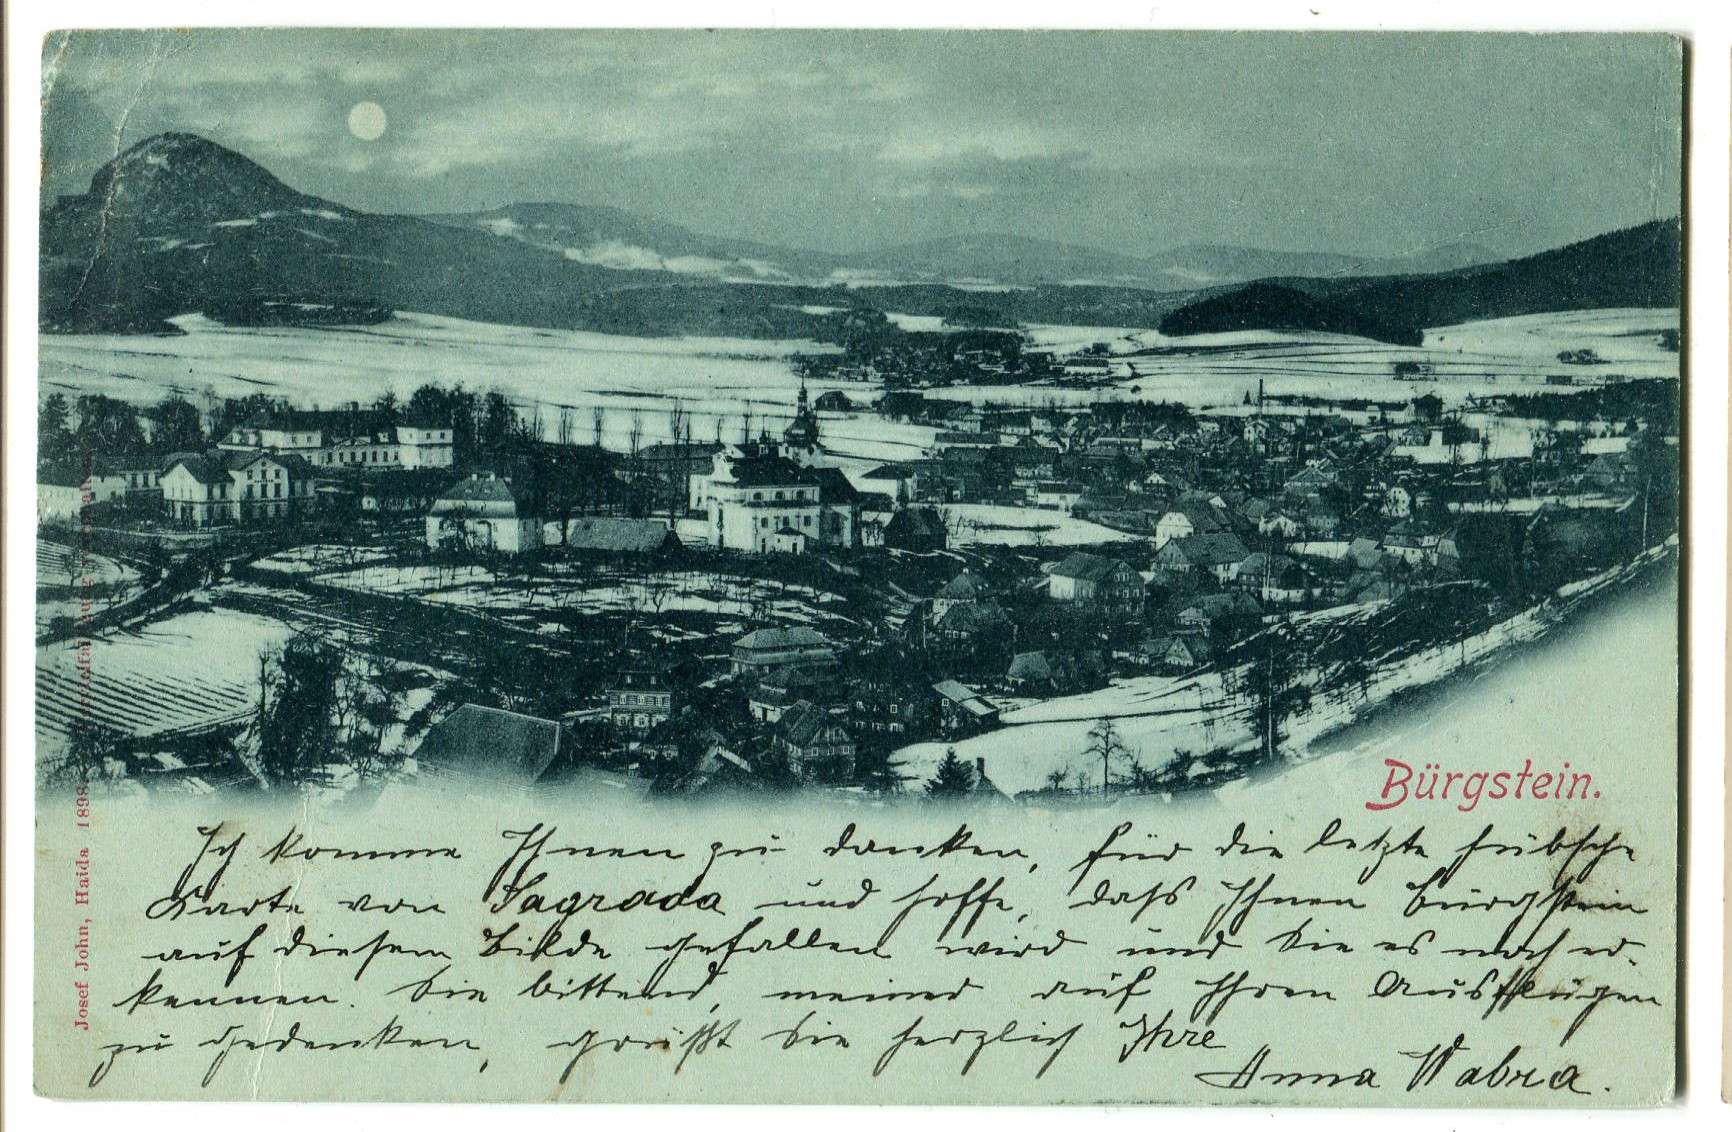 Bürgstein.
Ich komme Ihnen zu danken, für die letzte hübsche
Karte von Sagrada und hoffe, daß Ihnen Bürgstein
auf diesem Bilde gefallen wird und Sie es noch er-
kennen. Sie bittend, meiner auf Ihren Ausflügen
zu gedenken, grüßt Sie herzlich Ihre
Anna Wabra.
Josef John, Haida 1898.